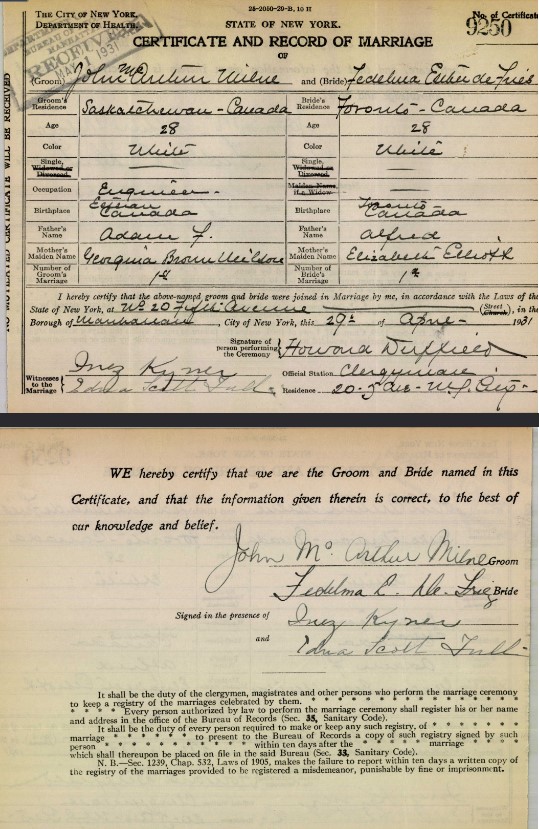 25-2050-29-B, 10 H
THE CITY OF NEW YORK.
DEPARTMENT OF HEALTH.
STATE OF NEW YORK.
No. of Certificate
9250
CERTIFICATE AND RECORD OF MARRIAGE
OF
DEPARTMENT OF
BUREAU OF
RECEIVED
MAY 1 1931
NO MUTILATED CERTIFICATE WILL BE RECEIVED
(Groom) John McArthur Milne and (Bride) Fedelma Esther de Fries
Groom's Residence Saskatchewan - Canada Bride's Residence Toronto - Canada
Age 28 Age 28
Color White Color White
Single, Widowed or Divorced Single, Widowed or Divorced
Occupation Engineer - Maiden Name, if a Widow
Birthplace Canada Birthplace Toronto Canada
Father's Name Adam F. Father's Name Alfred
Mother's Maiden Name Georginia Brown Mother's Maiden Name Elizabeth Elliott
Number of Groom's Marriage 1st Number of Bride's Marriage 1st
I hereby certify that the above-named groom and bride were joined in Marriage by me, in accordance with the Laws of the
State of New York, at No 20 Fifth Avenue (Street Church), in the
Borough of Manhattan, City of New York, this 29th of April - 1931
Signature of person performing the Ceremony Howard Duffield
Witnesses to the Marriage Inez Kyner Official Station Clergyman
Edna Scott Residence 20-5 Ave - N.Y. City -
9250
WE hereby certify that we are the Groom and Bride named in this
Certificate, and that the information given therein is correct, to the best of
our knowledge and belief.
John Mc Arthur Milne Groom
Fedelma E. De. Bride
Signed in the presence of Inez Kyner
and Edna Scott
It shall be the duty of the clergymen, magistrates and other persons who perform the marriage ceremony
to keep a registry of the marriages celebrated by them. * * * * * * * * * * * * * *
* * * * Every person authorized by law to perform the marriage ceremony shall register his or her name
and address in the office of the Bureau of Records (Sec. 35, Sanitary Code).
It shall be the duty of every person required to make or keep any such registry, of * * * * * * *
marriage * * * * * to present to the Bureau of Records a copy of such registry signed by such
person * * * * * * * * * * * within ten days after the * * * * * marriage * * * *
which shall thereupon be placed on file in the said Bureau (Sec. 33, Sanitary Code).
N. B.—Sec. 1239, Chap. 532, Laws of 1905, makes the failure to report within ten days a written copy of
the registry of the marriages provided to be registered a misdemeanor, punishable by fine or imprisonment.